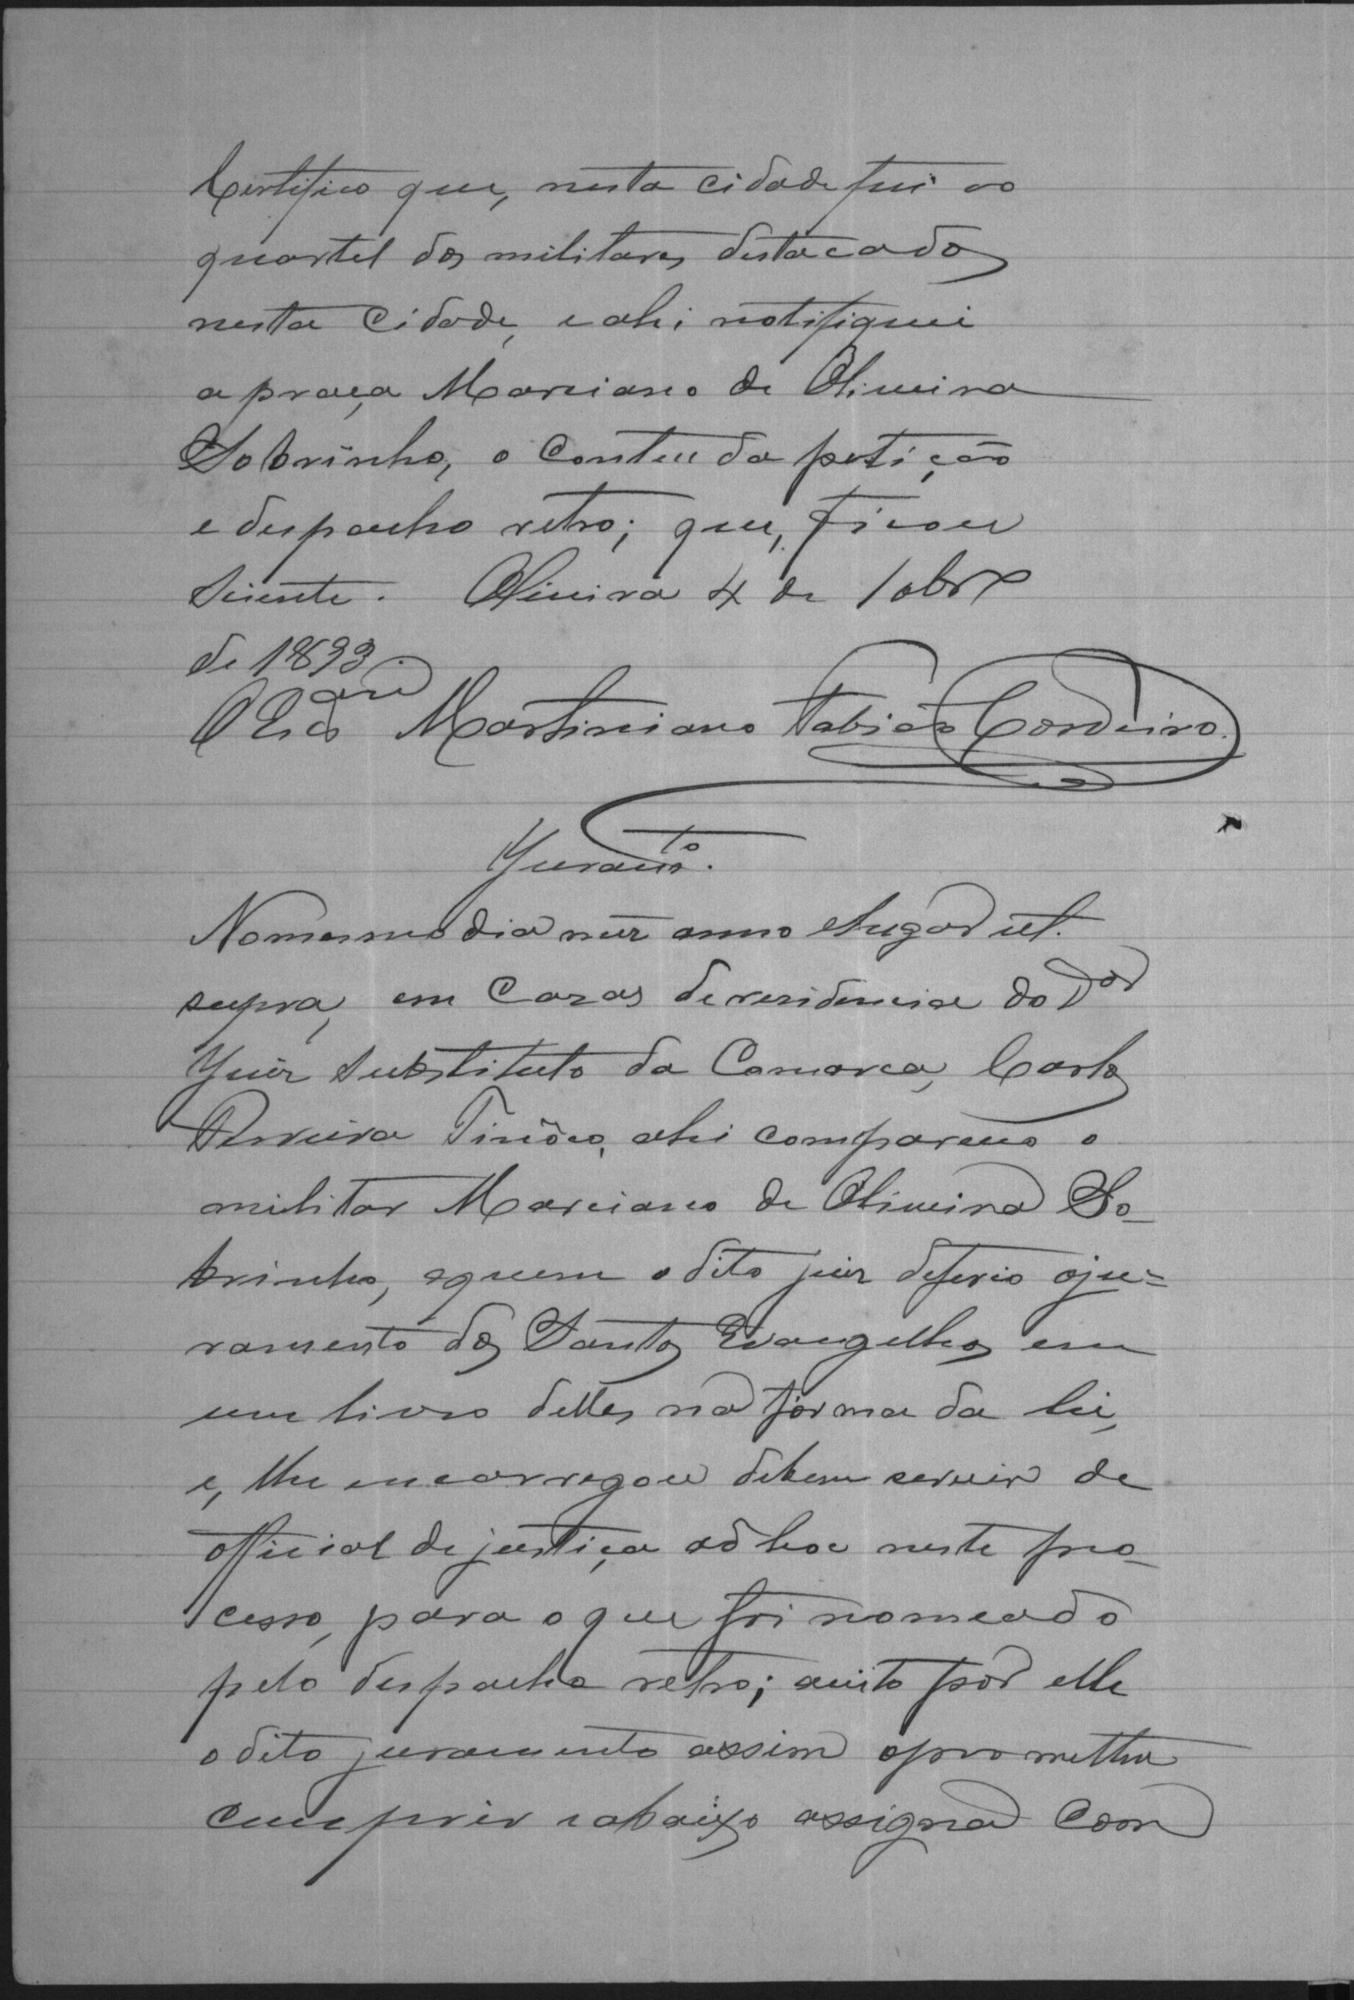 Certifico que, nesta cidade fui ao
quartel dos militares destacados
nesta Cidade, e ahi notifiquei
a praça Marciano de Oliveira
Sobrinho, o conteu da petição
e despacho retro; que, ficou
sciente. Oliveira 4 de
de 1893.
O Martiniano Fabião Cordeiro.
Juramto.
No mesmo dia mez anno e lugar ut.
supra, em Cazas de residencia do Dor
Juiz substituto da Comarca, Carlos
Ferreira Tinôco, ahi compareceo o
militar Marciano de Oliveira So-
brinho, a quem o dito juiz deferio o ju=
ramento dos Santos Evangelhos em
um livro delles na forma da lei,
e, lhe encarregou debem servir de
official de justiça ad hoc neste pro-
cesso, para o que foi nomeado
pelo despacho retro; aceito por elle
o dito juramento assim o prometteu
cumprir e abaixo assigna Com